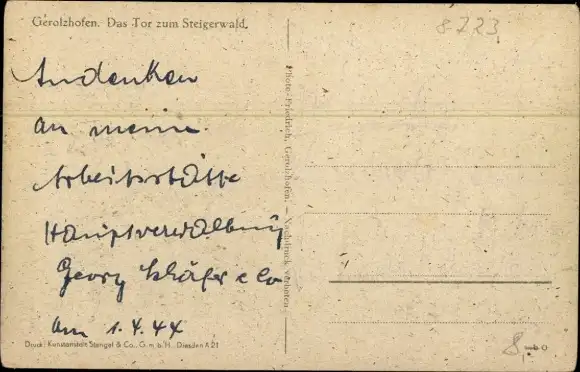 Gerolzhofen. Das Tor zum Steigerwald.
8723
Andenken
an meine
Arbeitsstätte
Hauptverwaltung
Georg Schäfer & Co
am 1.4.44
Photo-Friedrich, Gerolzhofen. – Nachdruck verboten
Druck: Kunstanstalt Stengel & Co., G. m. b. H., Dresden A 21
8,-